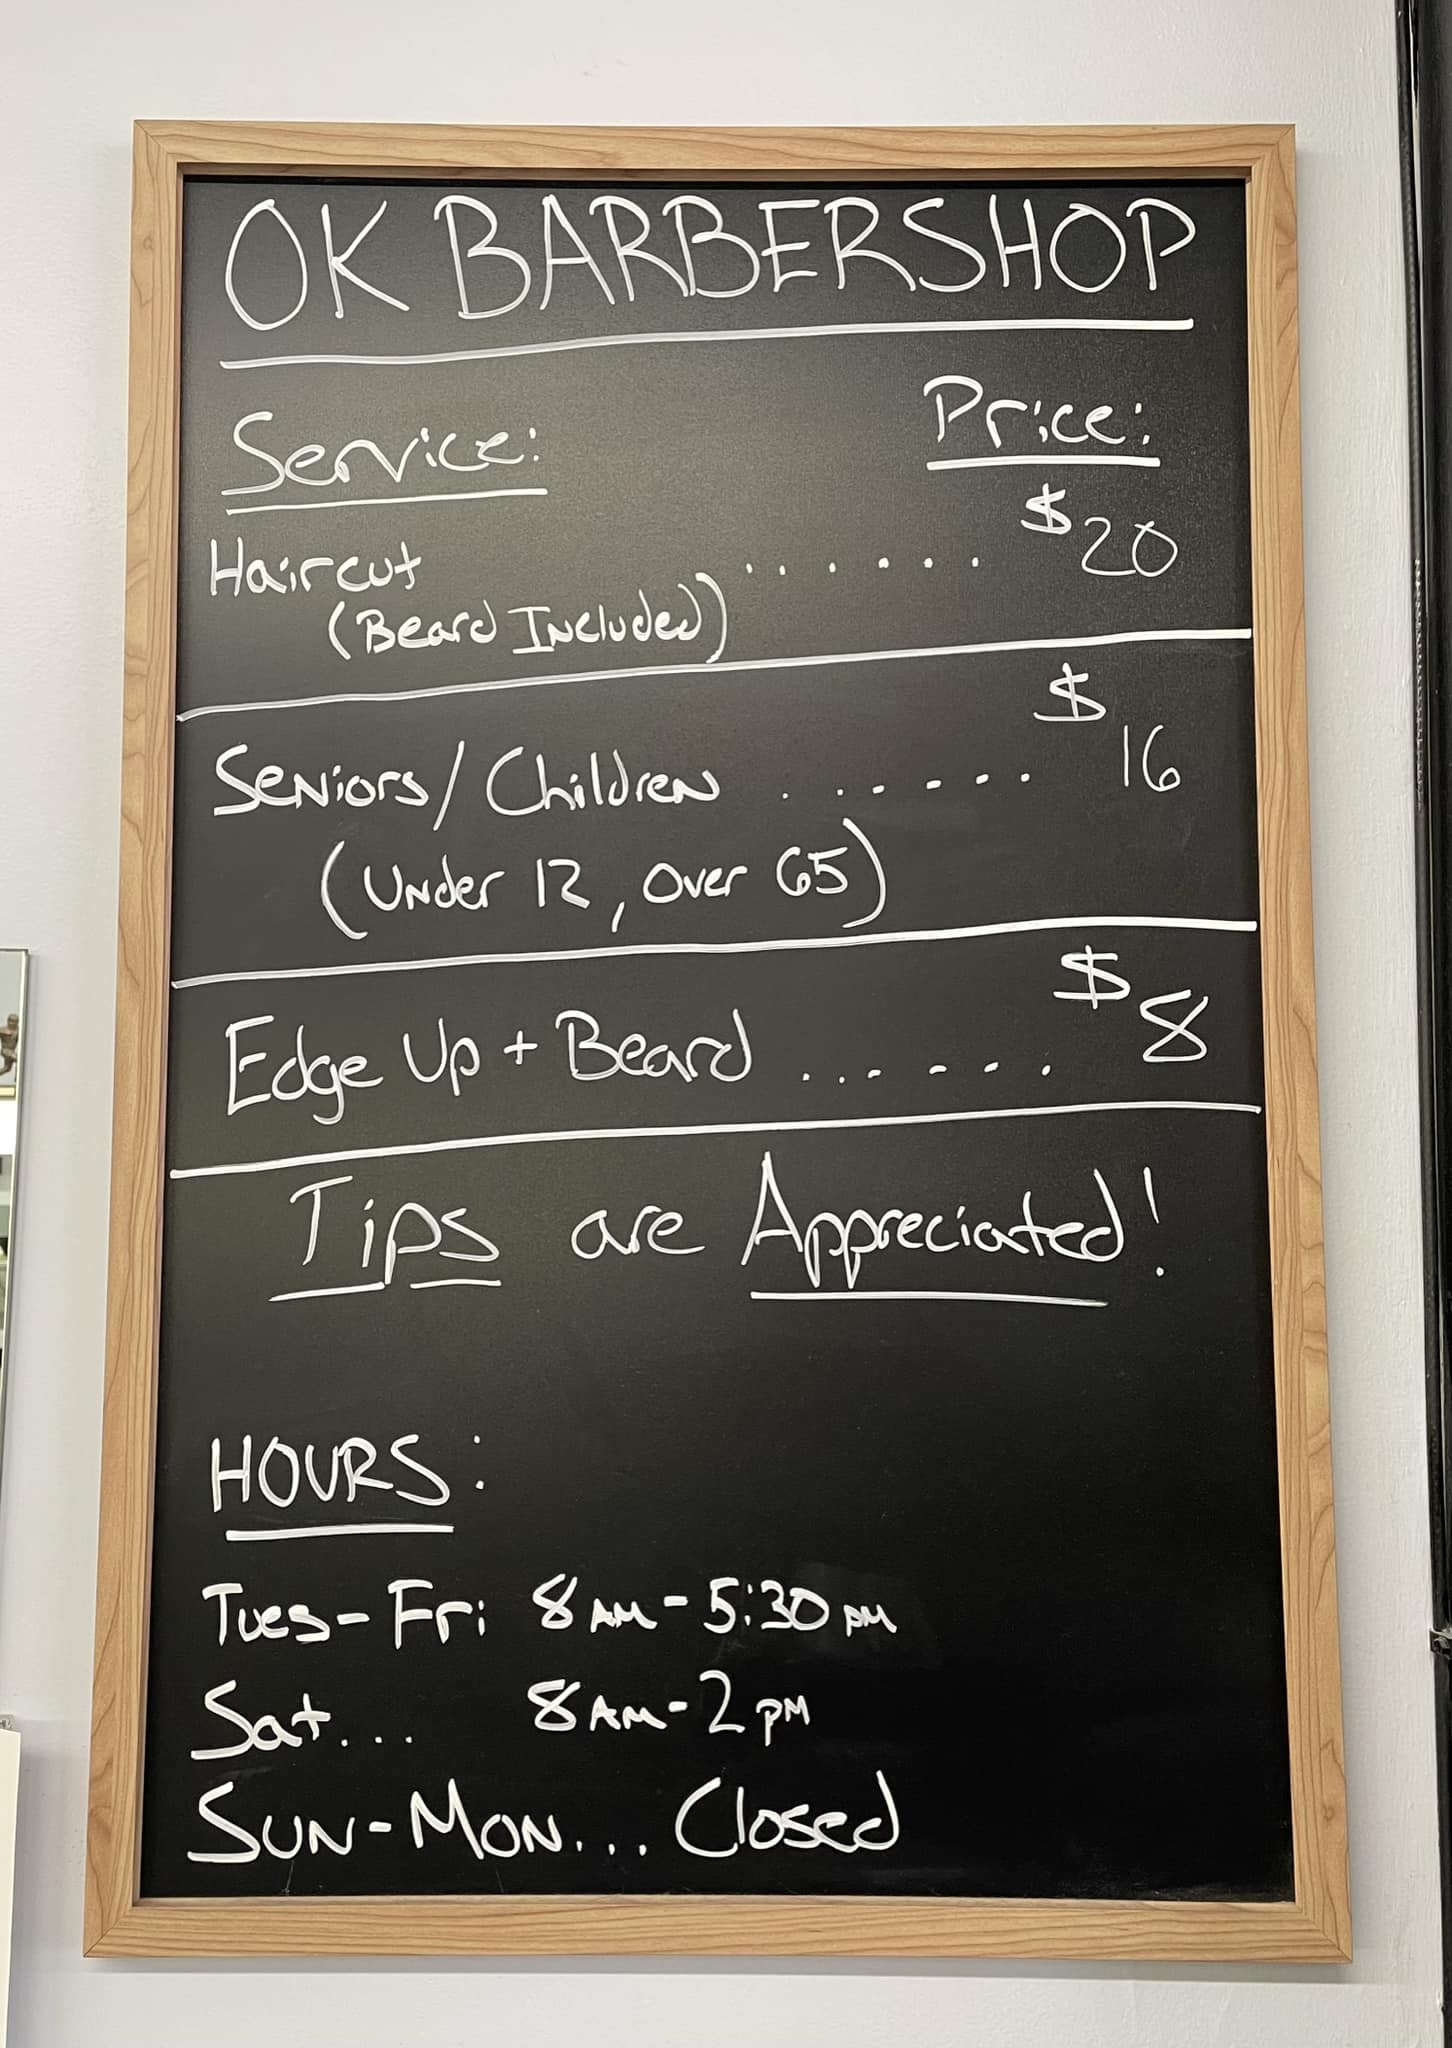 OK BARBERSHOP
Service: Price:
Haircut ....... $20
(Beard Included)
Seniors/Children ....... $16
(Under 12, Over 65)
Edge Up + Beard ....... $8
Tips are Appreciated!
HOURS:
Tues-Fri 8AM-5:30PM
Sat... 8AM-2PM
Sun-Mon... Closed